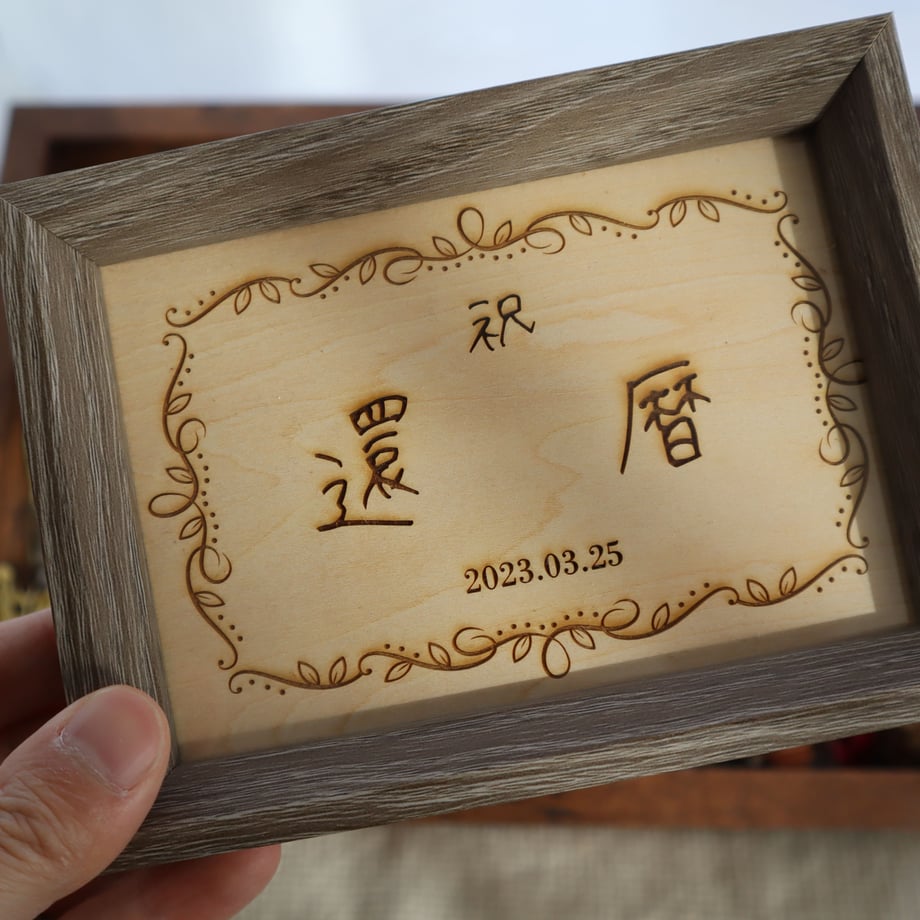 祝
還暦
2023.03.25